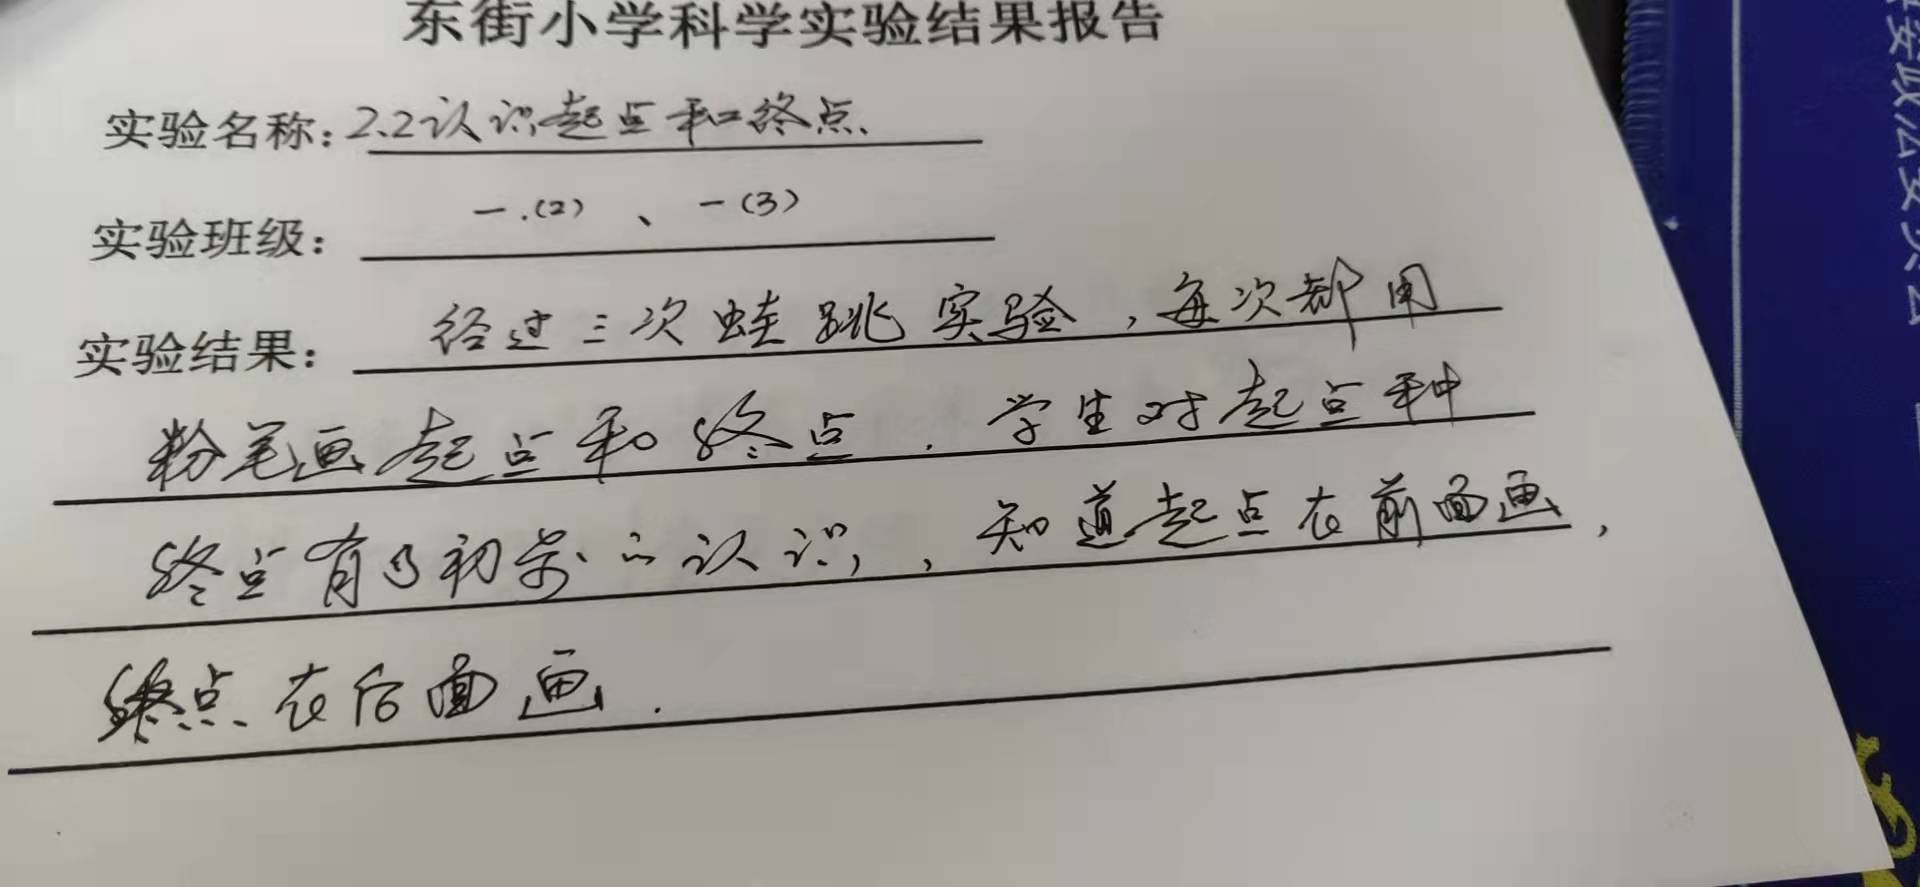 东街小学科学实验结果报告
实验名称：2.2认识起点和终点.
实验班级：一.(2)、一(3)
实验结果：经过三次蛙跳实验，每次都用
粉笔画起点和终点.学生对起点种
终点有了初步的认识，知道起点在前面画，
终点在后面画.